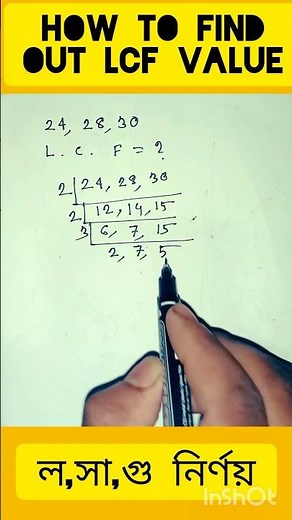 HOW TO FIND
OUT LCF VALUE
24, 28, 30
L. C. F = ?
2 24, 28, 30
2 12, 14, 15
3 6, 7, 15
2, 7, 5
ল,সা,গু নির্ণয়
InShOt